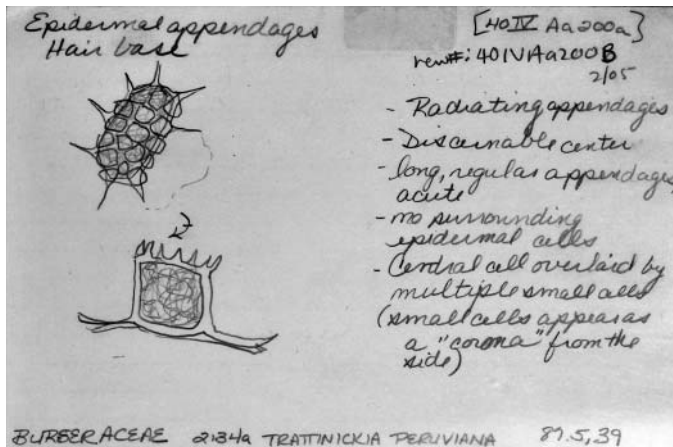 Epidermal appendages
Hair base
[40IV Aa200a]
new#: 40IVAa200B
2/05
- Radiating appendages
- Discernable center
- long, regular appendages,
acute
- no surrounding
epidermal cells
- Central cell overlaid by
multiple small cells
(small cells appear as
a "corona" from the
side)
BURSERACEAE 2134a TRATTINICKIA PERUVIANA 87.5, 39